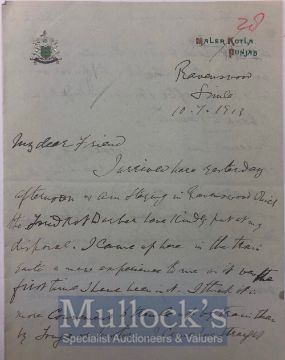 28
MALER KOTLA
PUNJAB
Ravenswood
Simla
10.7.1913
My dear Friend
I arrived here yesterday
afternoon & am staying in Ravenswood which
the Faridkot Darbar have kindly put at my
disposal. I came up here in the train
quite a new experience to me as it was the
first time I have been in it. I think it is
more
Mullock's
Specialist Auctioneers & Valuers